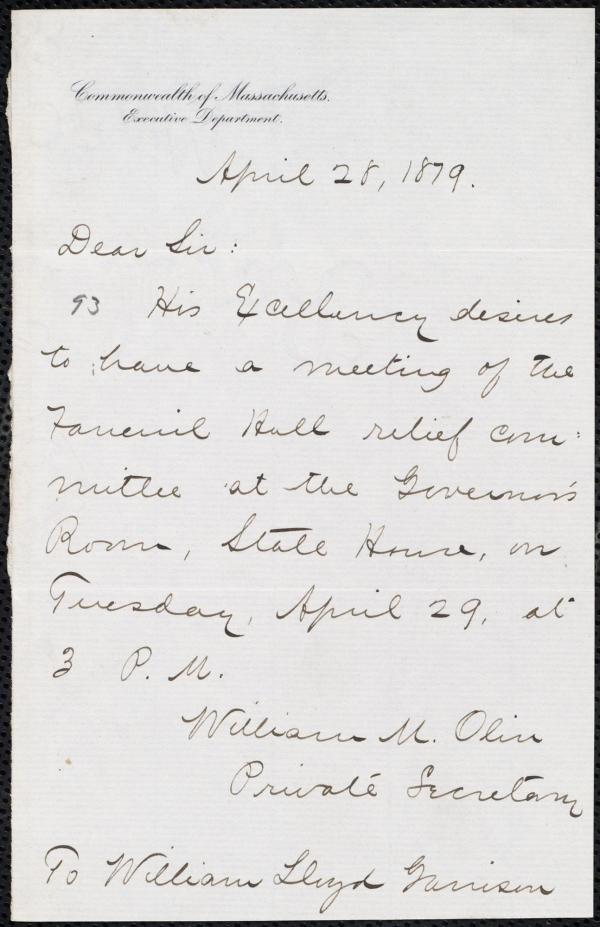 Commonwealth of Massachusetts.
Executive Department.
April 28, 1879.
Dear Sir:
93 His Excellency desires
to have a meeting of the
Faneuil Hall relief com:
mittee at the Governor's
Room, State House, on
Tuesday, April 29, at
3 P. M.
William M. Olin
Private Secretary
To William Lloyd Garrison